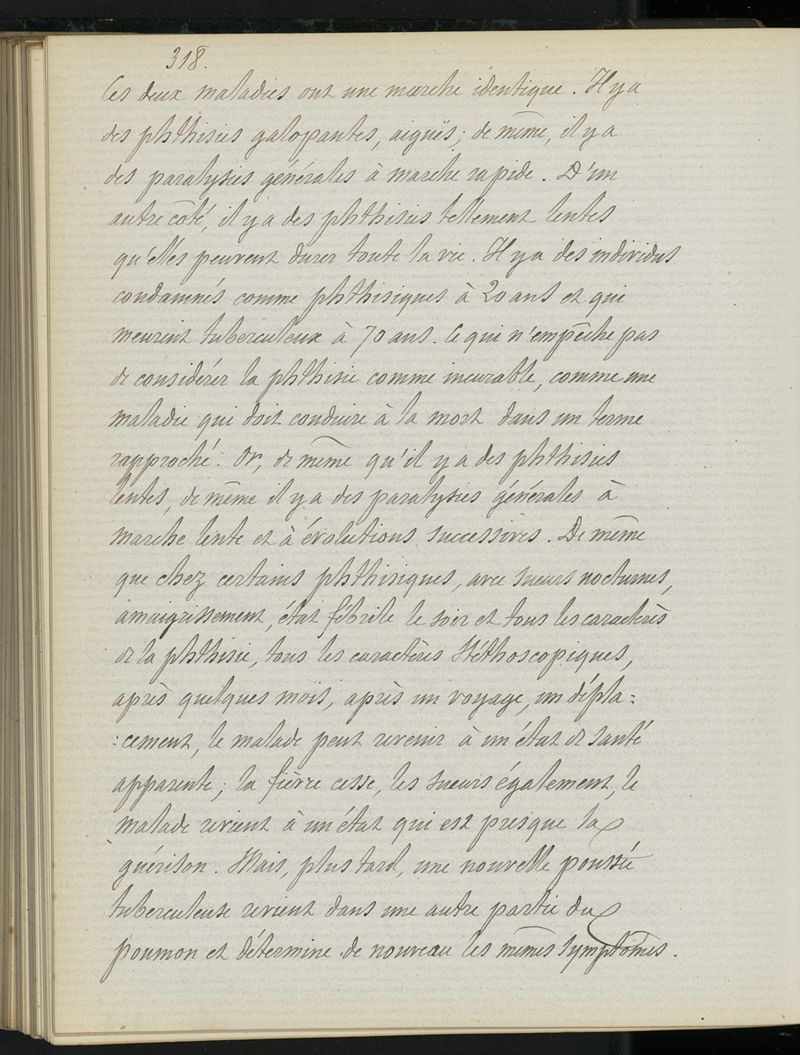 318.
Ces deux maladies ont une marche identique. Il y a
des phthisies galopantes, aiguës; de même, il y a
des paralysies générales à marche rapide. D'un
autre côté, il y a des phthisies tellement lentes
qu'elles peuvent durer toute la vie. Il y a des individus
condamnés comme phthisiques à 20 ans et qui
meurent tuberculeux à 70 ans. Ce qui n'empêche pas
de considérer la phthisie comme incurable, comme une
maladie qui doit conduire à la mort dans un terme
rapproché. Or, de même qu'il y a des phthisies
lentes, de même il y a des paralysies générales à
marche lente et à évolutions successives. De même
que chez certains phthisiques, avec sueurs nocturnes,
amaigrissement, état fébrile le soir et tous les caractères
de la phthisie, tous les caractères stéthoscopiques,
après quelques mois, après un voyage, un dépla=
=cement, le malade peut revenir à un état de santé
apparente; la fièvre cesse, les sueurs également, le
malade revient à un état qui est presque la
guérison. Mais, plus tard, une nouvelle poussée
tuberculeuse revient dans une autre partie du
poumon et détermine de nouveau les mêmes symptômes.